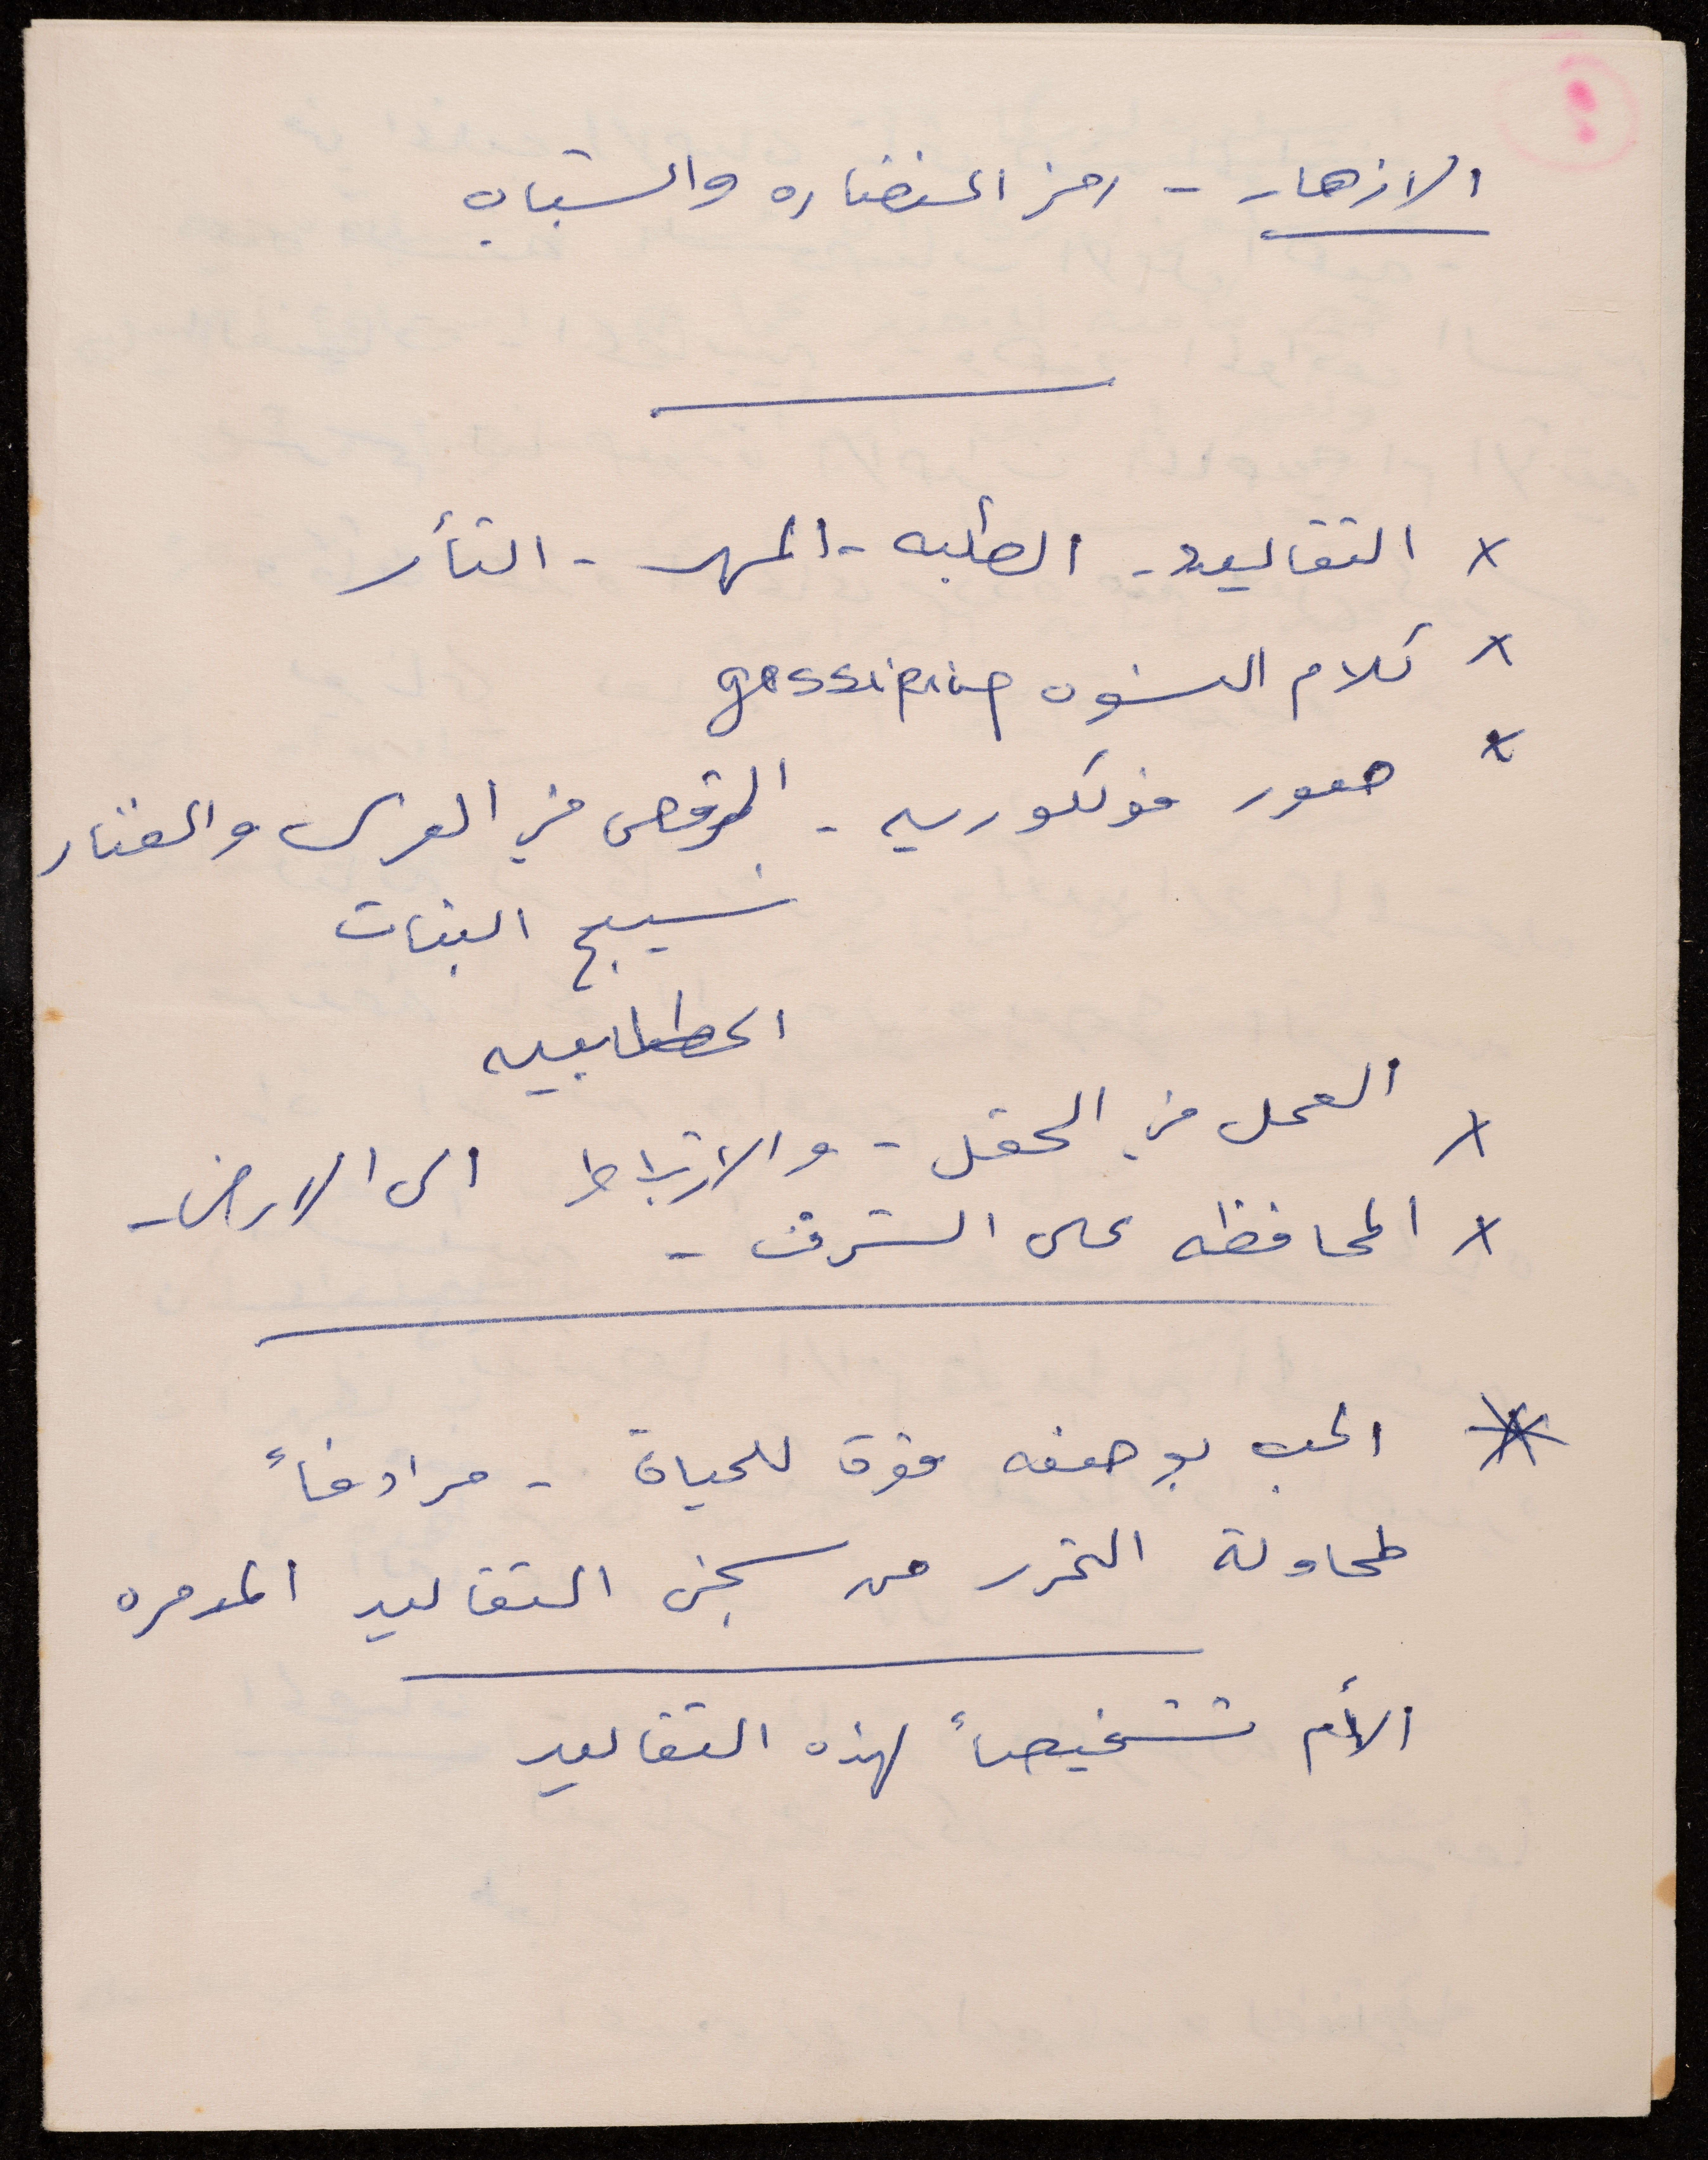 الازهار - رمز النضاره والشباب
x التقاليد - الطلبه - المهر - الثأر
x كلام النسوه gossiping
x صور فولكوريه - الرقص في العرس والغناء
نسيج البنات
الحطابيه
x العمل في الحقل - والارتباط الى الارض -
x المحافظه على الشرف -
* الحب بوصفه قوة للحياة - مرادفاً
لمحاولة التحرر من سجن التقاليد المدمره
الأم تشخيصاً لهذه التقاليد